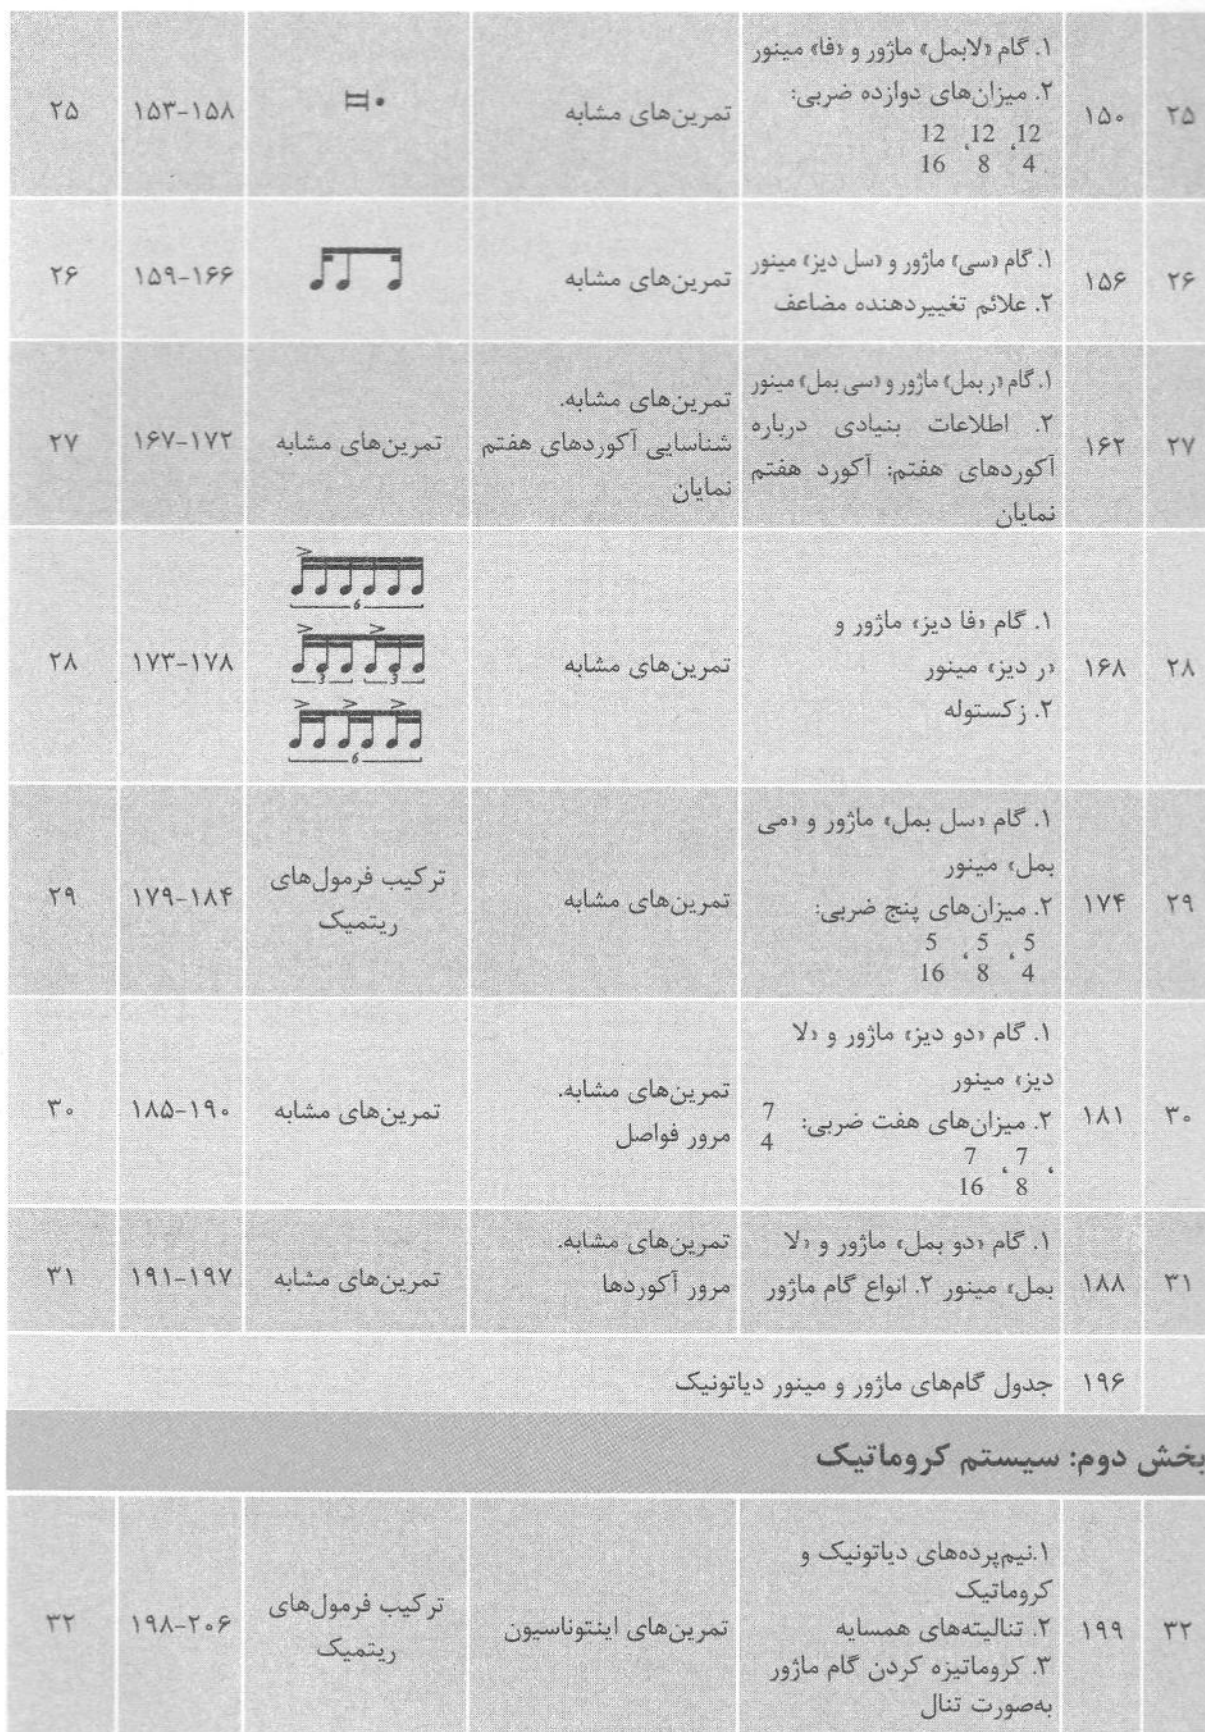 ۲۵
۱۵۰
۱. گام «لابمل» ماژور و «فا» مینور
۲. میزان‌های دوازده ضربی:
12 ،12 ،12
16 8 4
تمرین‌های مشابه
۱۵۳-۱۵۸
۲۵
۲۶
۱۵۶
۱. گام «سی» ماژور و «سل دیز» مینور
۲. علائم تغییردهنده مضاعف
تمرین‌های مشابه
۱۵۹-۱۶۶
۲۶
۲۷
۱۶۲
۱. گام «ر بمل» ماژور و «سی بمل» مینور
۲. اطلاعات بنیادی درباره
آکوردهای هفتم: آکورد هفتم
نمایان
تمرین‌های مشابه.
شناسایی آکوردهای هفتم
نمایان
تمرین‌های مشابه
۱۶۷-۱۷۲
۲۷
۲۸
۱۶۸
۱. گام «فا دیز» ماژور و
«ر دیز» مینور
۲. زکستوله
تمرین‌های مشابه
6
3 3
6
۱۷۳-۱۷۸
۲۸
۲۹
۱۷۴
۱. گام «سل بمل» ماژور و «می
بمل» مینور
۲. میزان‌های پنج ضربی:
5 ،5 ،5
16 8 4
تمرین‌های مشابه
ترکیب فرمول‌های
ریتمیک
۱۷۹-۱۸۴
۲۹
۳۰
۱۸۱
۱. گام «دو دیز» ماژور و «لا
دیز» مینور
۲. میزان‌های هفت ضربی: 7
4
7 ،7 ،
16 8
تمرین‌های مشابه.
مرور فواصل
تمرین‌های مشابه
۱۸۵-۱۹۰
۳۰
۳۱
۱۸۸
۱. گام «دو بمل» ماژور و «لا
بمل» مینور ۲. انواع گام ماژور
تمرین‌های مشابه.
مرور آکوردها
تمرین‌های مشابه
۱۹۱-۱۹۷
۳۱
۱۹۶
جدول گام‌های ماژور و مینور دیاتونیک
بخش دوم: سیستم کروماتیک
۳۲
۱۹۹
۱.نیم‌پرده‌های دیاتونیک و
کروماتیک
۲. تنالیته‌های همسایه
۳. کروماتیزه کردن گام ماژور
به‌صورت تنال
تمرین‌های اینتوناسیون
ترکیب فرمول‌های
ریتمیک
۱۹۸-۲۰۶
۳۲